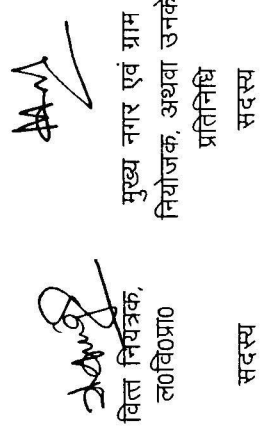 वित्त नियंत्रक,
ल०वि०प्रा०
सदस्य
मुख्य नगर एवं ग्राम
नियोजक, अथवा उनके
प्रतिनिधि
सदस्य